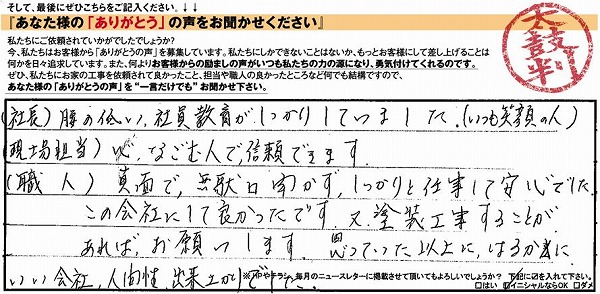 そして、最後にぜひこちらをご記入ください。↓↓↓
『あなた様の「ありがとう」の声をお聞かせください』
太鼓判
私たちにご依頼されていかがでしたでしょうか?
今、私たちはお客様から「ありがとうの声」を募集しています。私たちにしかできないことはないか、もっとお客様にして差し上げることは
何かを日々追求しています。また、何よりお客様からの励ましの声がいつも私たちの力の源になり、勇気付けてくれるのです。
ぜひ、私たちにお家の工事を依頼されて良かったこと、担当や職人の良かったところなど何でも結構ですので、
あなた様の「ありがとうの声」を“一言だけでも”お聞かせ下さい。
(社長)腰の低い、社員教育がしっかりしていました。(いつも笑顔の人)
現場担当)心なごむ人で、信頼できます。
(職人)真面で、無駄口聞かず、しっかりと仕事して安心でした。
この会社にして良かったです。又塗装工事することが
あれば、お願いします。思っていた以上に、はるか
いい会社、人間性、出来上がりでした。
※HPやチラシ、毎月のニュースレターに掲載させて頂いてもよろしいでしょうか? 下記に☑を入れて下さい。
□はい ☑イニシャルならOK □ダメ